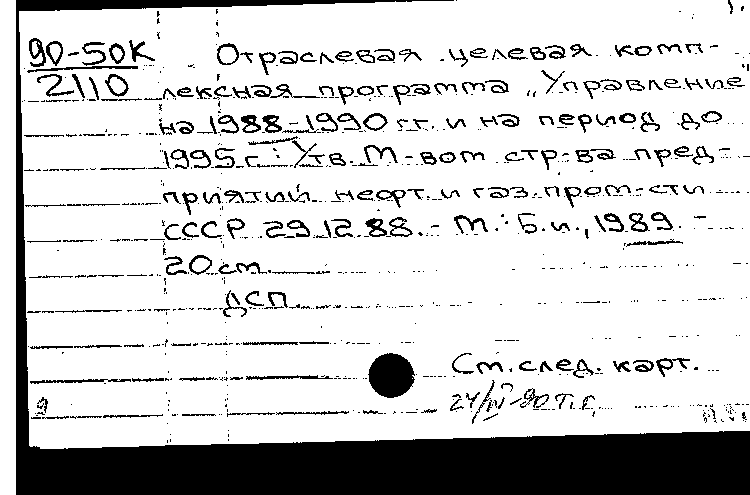 1.
90-50К Отраслевая целевая комп-
2110 лексная программа „Управление"
на 1988-1990 г.г. и на период до
1995 г.: Утв. М-вом стр-ва пред-
приятий нефт. и газ. пром-сти
СССР 29.12.88. - М.: Б.и., 1989. -
20 см.
ДСП.
См. след. карт.
9 24/IV-90 т.г.